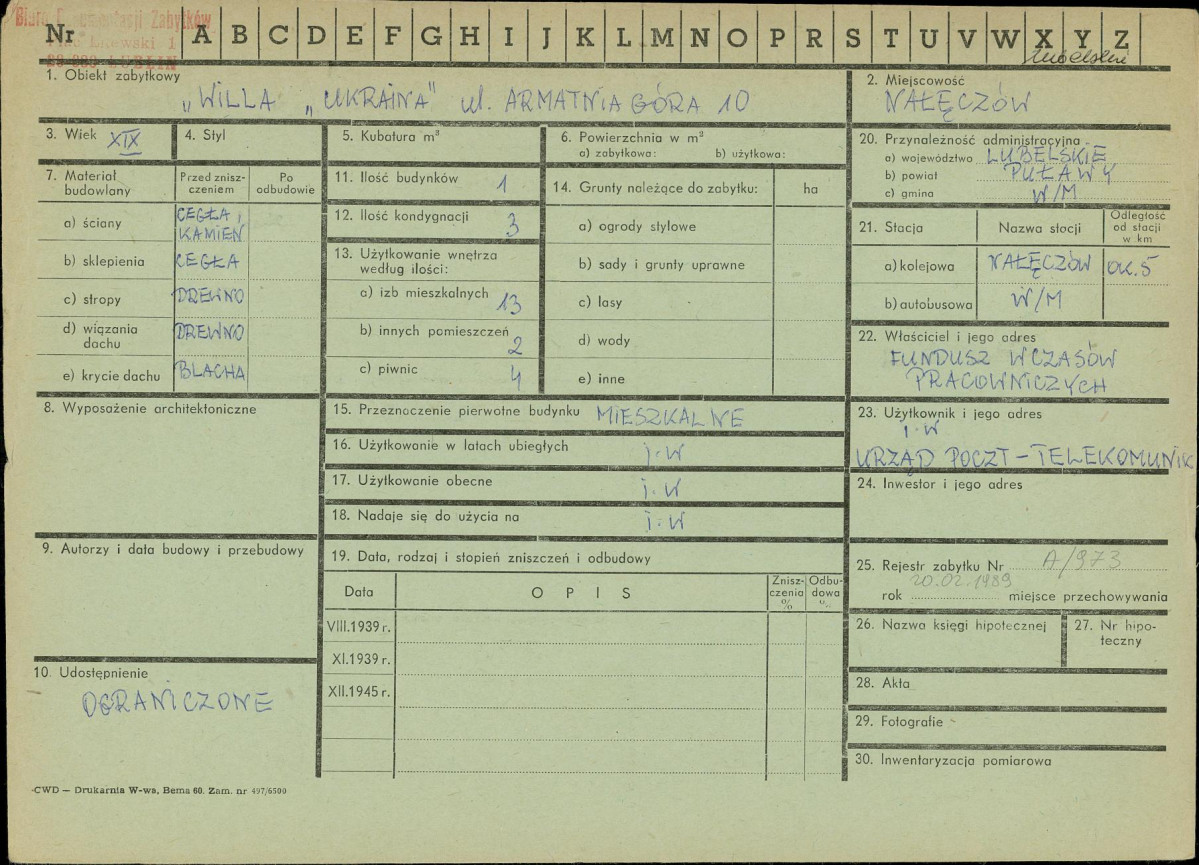 Biuro Dokumentacji Zabytków
Nr A B C D E F G H I J K L M N O P R S T U V W X Y Z
Plac Litewski 1
LUBLIN
lubelskie
1. Obiekt zabytkowy
„WILLA „UKRAINA" ul. ARMATNIA GÓRA 10
2. Miejscowość
NAŁĘCZÓW
3. Wiek XIX
4. Styl
5. Kubatura m³
6. Powierzchnia w m³
a) zabytkowa: b) użytkowa:
7. Materiał budowlany
Przed zniszczeniem
Po odbudowie
a) ściany CEGŁA, KAMIEŃ
b) sklepienia CEGŁA
c) stropy DREWNO
d) wiązania dachu DREWNO
e) krycie dachu BLACHA
8. Wyposażenie architektoniczne
9. Autorzy i data budowy i przebudowy
10. Udostępnienie
OGRANICZONE
11. Ilość budynków 1
12. Ilość kondygnacji 3
13. Użytkowanie wnętrza według ilości:
a) izb mieszkalnych 13
b) innych pomieszczeń 2
c) piwnic 4
14. Grunty należące do zabytku: ha
a) ogrody stylowe
b) sady i grunty uprawne
c) lasy
d) wody
e) inne
15. Przeznoczenie pierwotne budynku MIESZKALNE
16. Użytkowanie w latach ubiegłych j.w
17. Użytkowanie obecne j.w
18. Nadaje się do użycia na j.w
19. Data, rodzaj i stopień zniszczeń i odbudowy
Data
OPIS
Zniszczenia %
Odbudowa %
VIII.1939 r.
XI.1939 r.
XII.1945 r.
20. Przynależność administracyjna
a) województwo LUBELSKIE
b) powiat PUŁAWY
c) gmina W/M
21. Stacja
Nazwa stacji
Odległość od stacji w km
a) kolejowa NAŁĘCZÓW ok. 5
b) autobusowa W/M
22. Właściciel i jego adres
FUNDUSZ WCZASÓW
PRACOWNICZYCH
23. Użytkownik i jego adres
j.w
URZĄD POCZT-TELEKOMUNIK
24. Inwestor i jego adres
25. Rejestr zabytku Nr A/973
20.02.1989
rok miejsce przechowywania
26. Nazwa księgi hipotecznej
27. Nr hipoteczny
28. Akta
29. Fotografie
30. Inwentaryzacja pomiarowa
CWD — Drukarnia W-wa, Bema 60. Zam. nr 497/6500